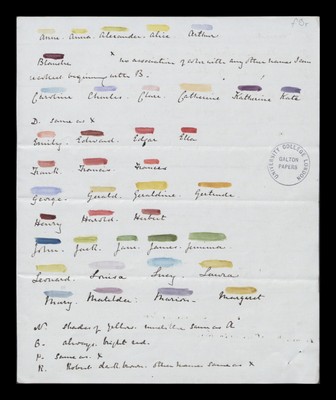 F 3r
Anne. Anna. Alexander. Alice Arthur.
Blanche x no association of color with any other names I can
recollect beginning with B.
Caroline Charles. Clare. Catherine Katharine Kate
D. same as X
Emily. Edward. Edgar Ellen
Frank. Francis. Frances
George. Gerald. Geraldine. Gertrude
Henry Harold. Herbert
John. Jack. Jane. James. Jemima.
Leonard. Louisa Lucy. Laura
Mary. Matilda. Marion. Margaret
N. shades of yellow. same as A
O. always bright red.
P. same as X
R. Robert dark brown. other names same as X
UNIVERSITY COLLEGE LONDON
GALTON
PAPERS